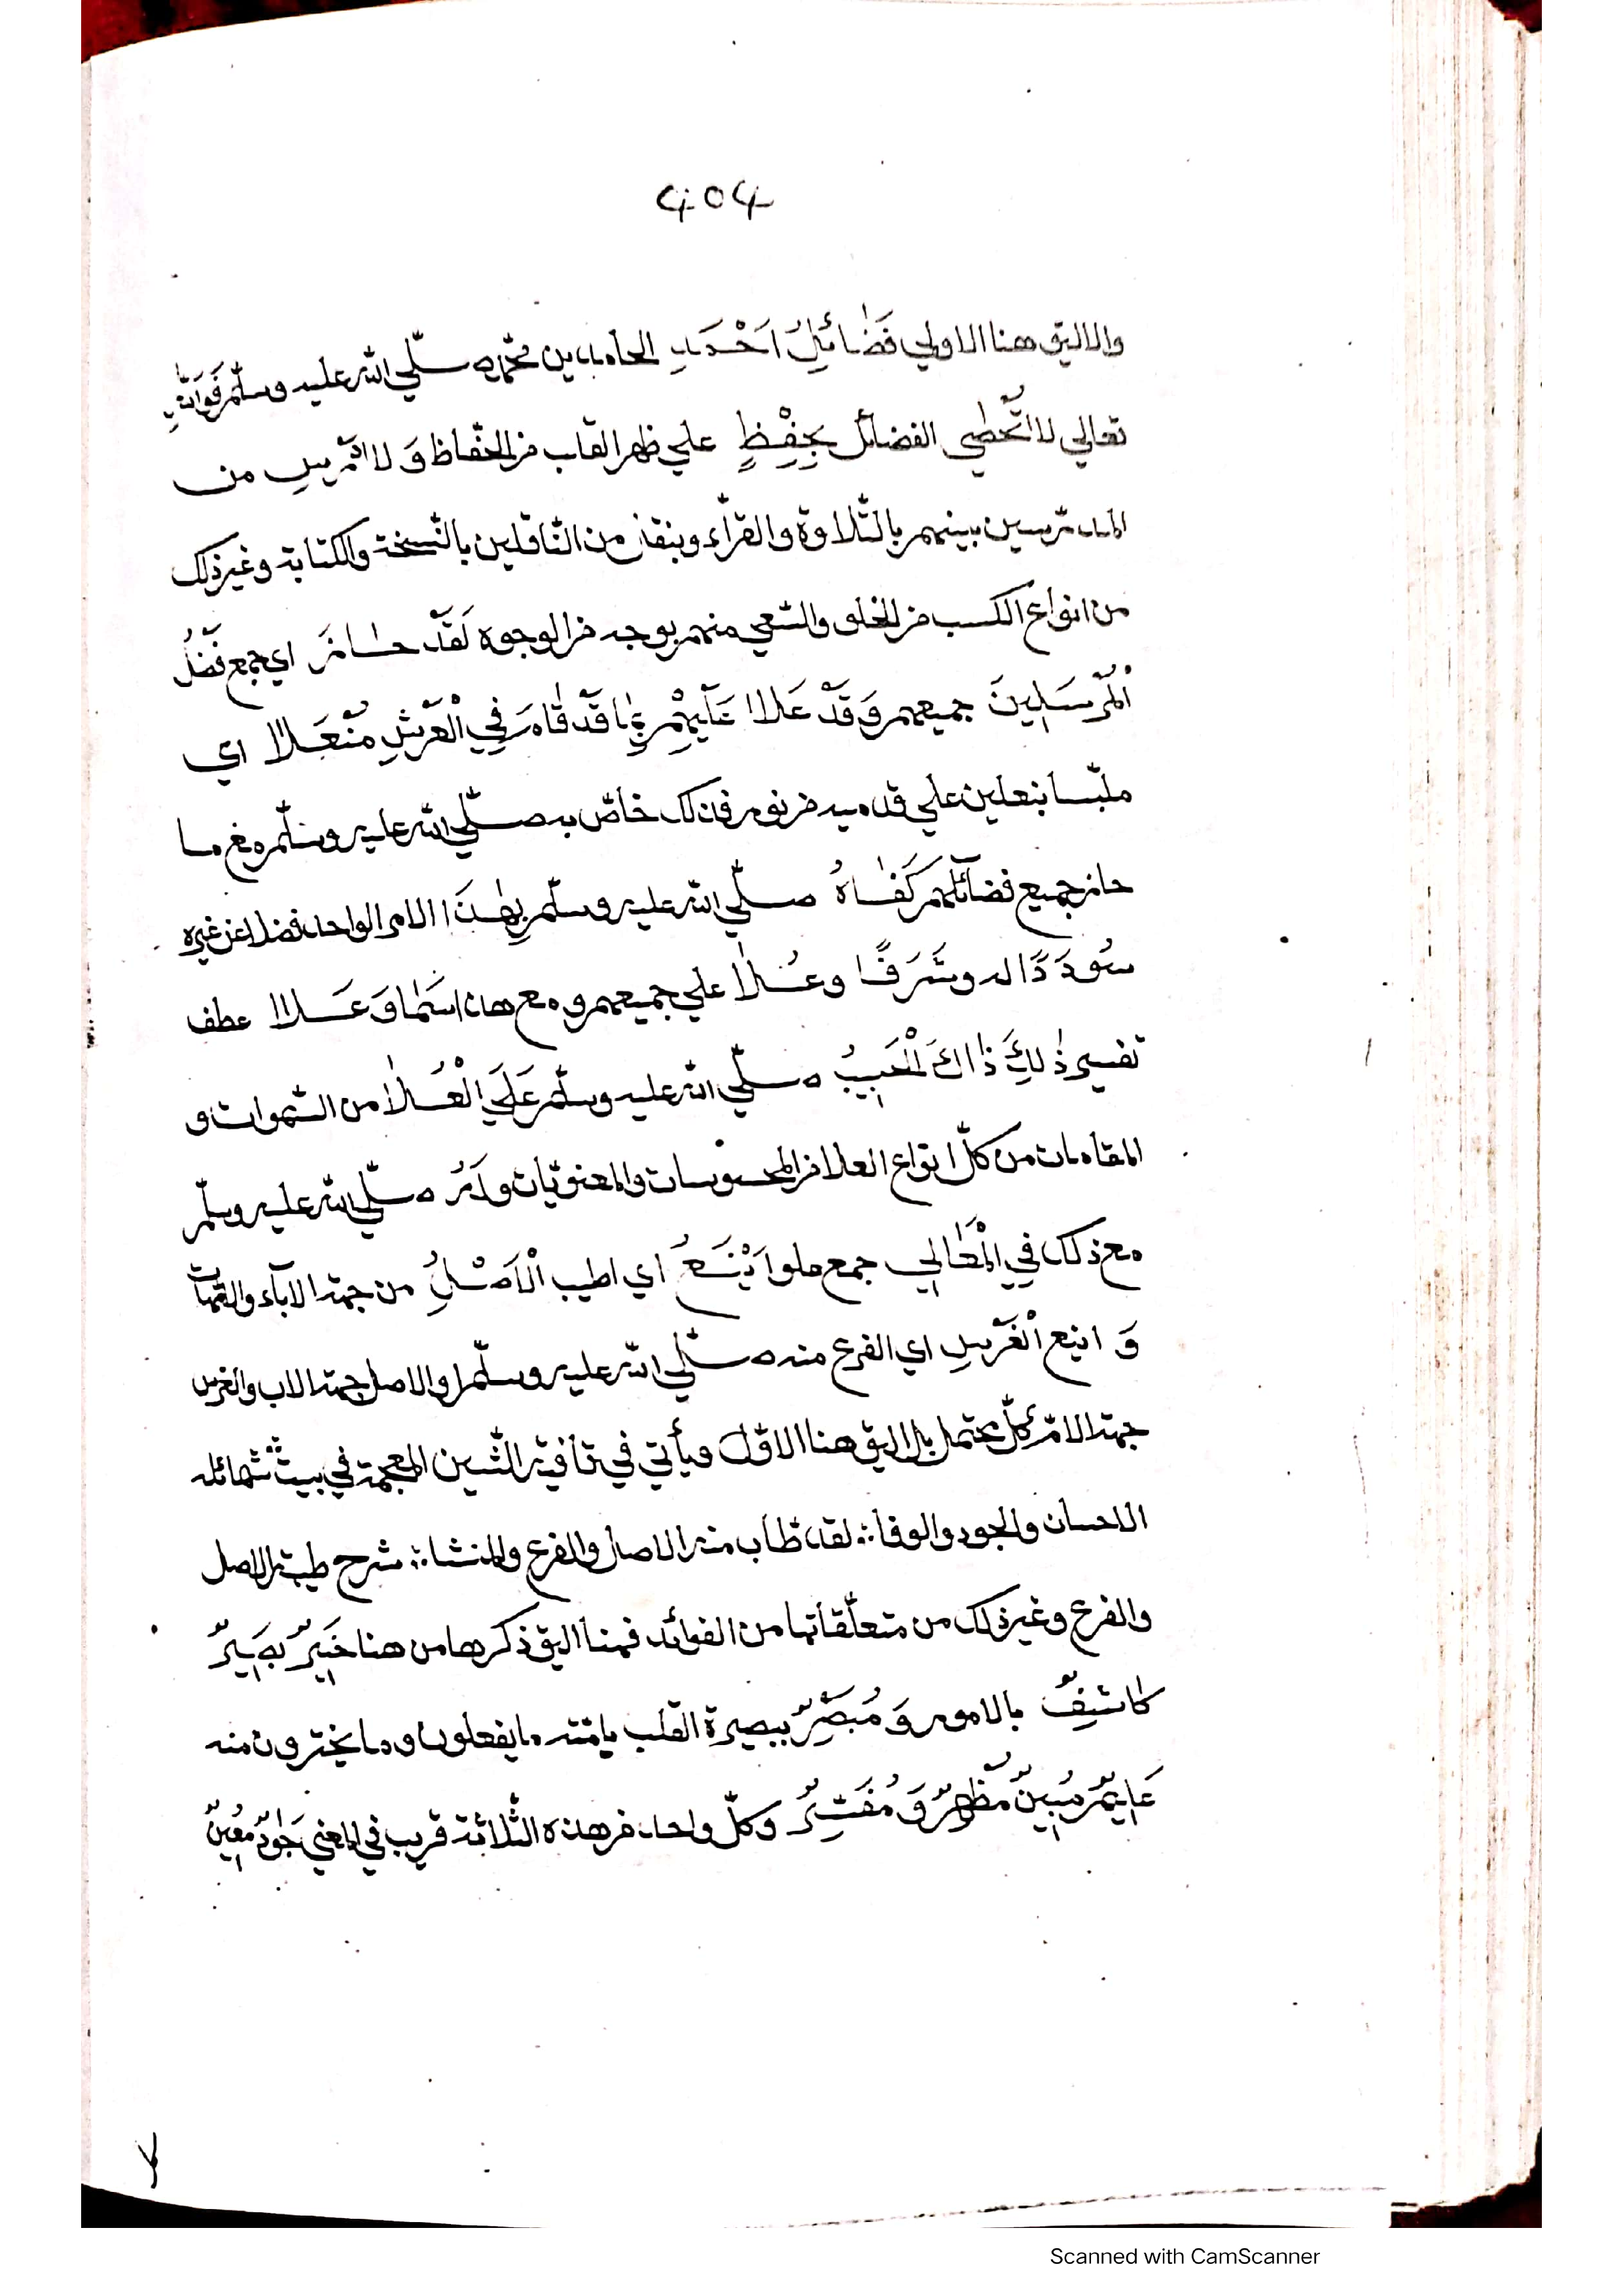 404
والاليق هنا الاولي فَضَائِلُ اَحْمَدِ الحامدين محمّد صلّي الله عليه وسلّم فَوَاللهِ
تعالي لا تُحْصٰي الفضائل بِحِفْظٍ علي ظهر القلب من الحفّاظ وَلا دَرْسٍ من
المدرّسين بينهم بالتّلاوة والقرأء وبنقل من النّاقلين بالنّسخة والكتابة وغير ذلك
من انواع الكسب من الخلق والسّعي منهم بوجه من الوجوه لَقَدْ حَازَ اي جمع فَضْلَ
الْمُرْسَلِينَ جميعهم وَقَدْ عَلَا عَلَيْهِمْ بِمَا قَدْ قَامَ فِي الْعَرْشِ مُنْعَلًا اي
ملبّسا بنعلين علي قدميه من نور فان ذلك خاصّ به صلّي الله عليه وسلّم مع ما
حاز جميع فضائلهم كَفَاهُ صلّي الله عليه وسلّم بِهٰذَا الامر الواحد فضلا عن غيره
سُودَدًا له وشَرَفًا وعُلًا علي جميعهم ومع هذا سَمَا وَعَلَا عطف
تفسير ذٰلِكَ ذَاكَ الْحَبِيبُ صلّي الله عليه وسلّم عَلَي الْعُلَا من السّموات و
المقامات من كلّ انواع العلا من المحسوسات والمعنويّات وَلَهُ صلّي الله عليه وسلّم
مع ذلك فِي الْمَعَالِي جمع علو اَيْنَعُ اي اطيب الْاَصْلِ من جهة الآبآء والامّهات
وَ اينع الْغَرْسِ اي الفرع منه صلّي الله عليه وسلّم او الاصل جهة الاب والغرس
جهة الامّ كلّ يحتمل بل اليق هنا الاوّل ويأتي في قافية الشّين المعجمة في بيت شمائله
الاحسان والجود والوفا؞ لقد طاب منه الاصل والفرع والمنشا؞ شرح طيبة الاصل
والفرع وغير ذلك من متعلّقاتها من الفوائد فهنا اليق ذكرها من هنا خَبِيرٌ بَصِيرٌ
كَاشِفٌ بالامور وَ مُبَصِّرٌ ببصيرة القلب يامته ما يفعلون وما يخترون منه
عَلِيمٌ مُبِينٌ مُظْهِرٌ وَ مُفَسِّرٌ وكلّ واحد من هذه الثّلاثة قريب في المعني جَوَادٌ مُعِينٌ
Scanned with CamScanner